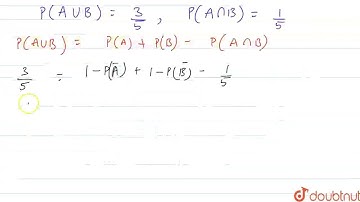 P(A∪B) = 3/5 , P(A∩B) = 1/5
P(A∪B) = P(A) + P(B) - P(A∩B)
3/5 = 1-P(Ā) + 1-P(B̄) - 1/5
doubtnut